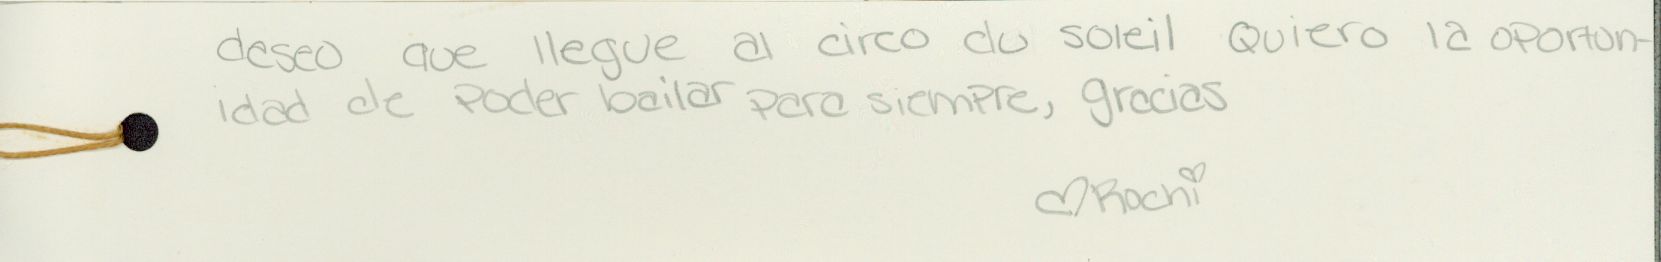 deseo que llegue al circo du soleil Quiero la oportun-
idad de poder bailar para siempre, gracias
♡Rochi